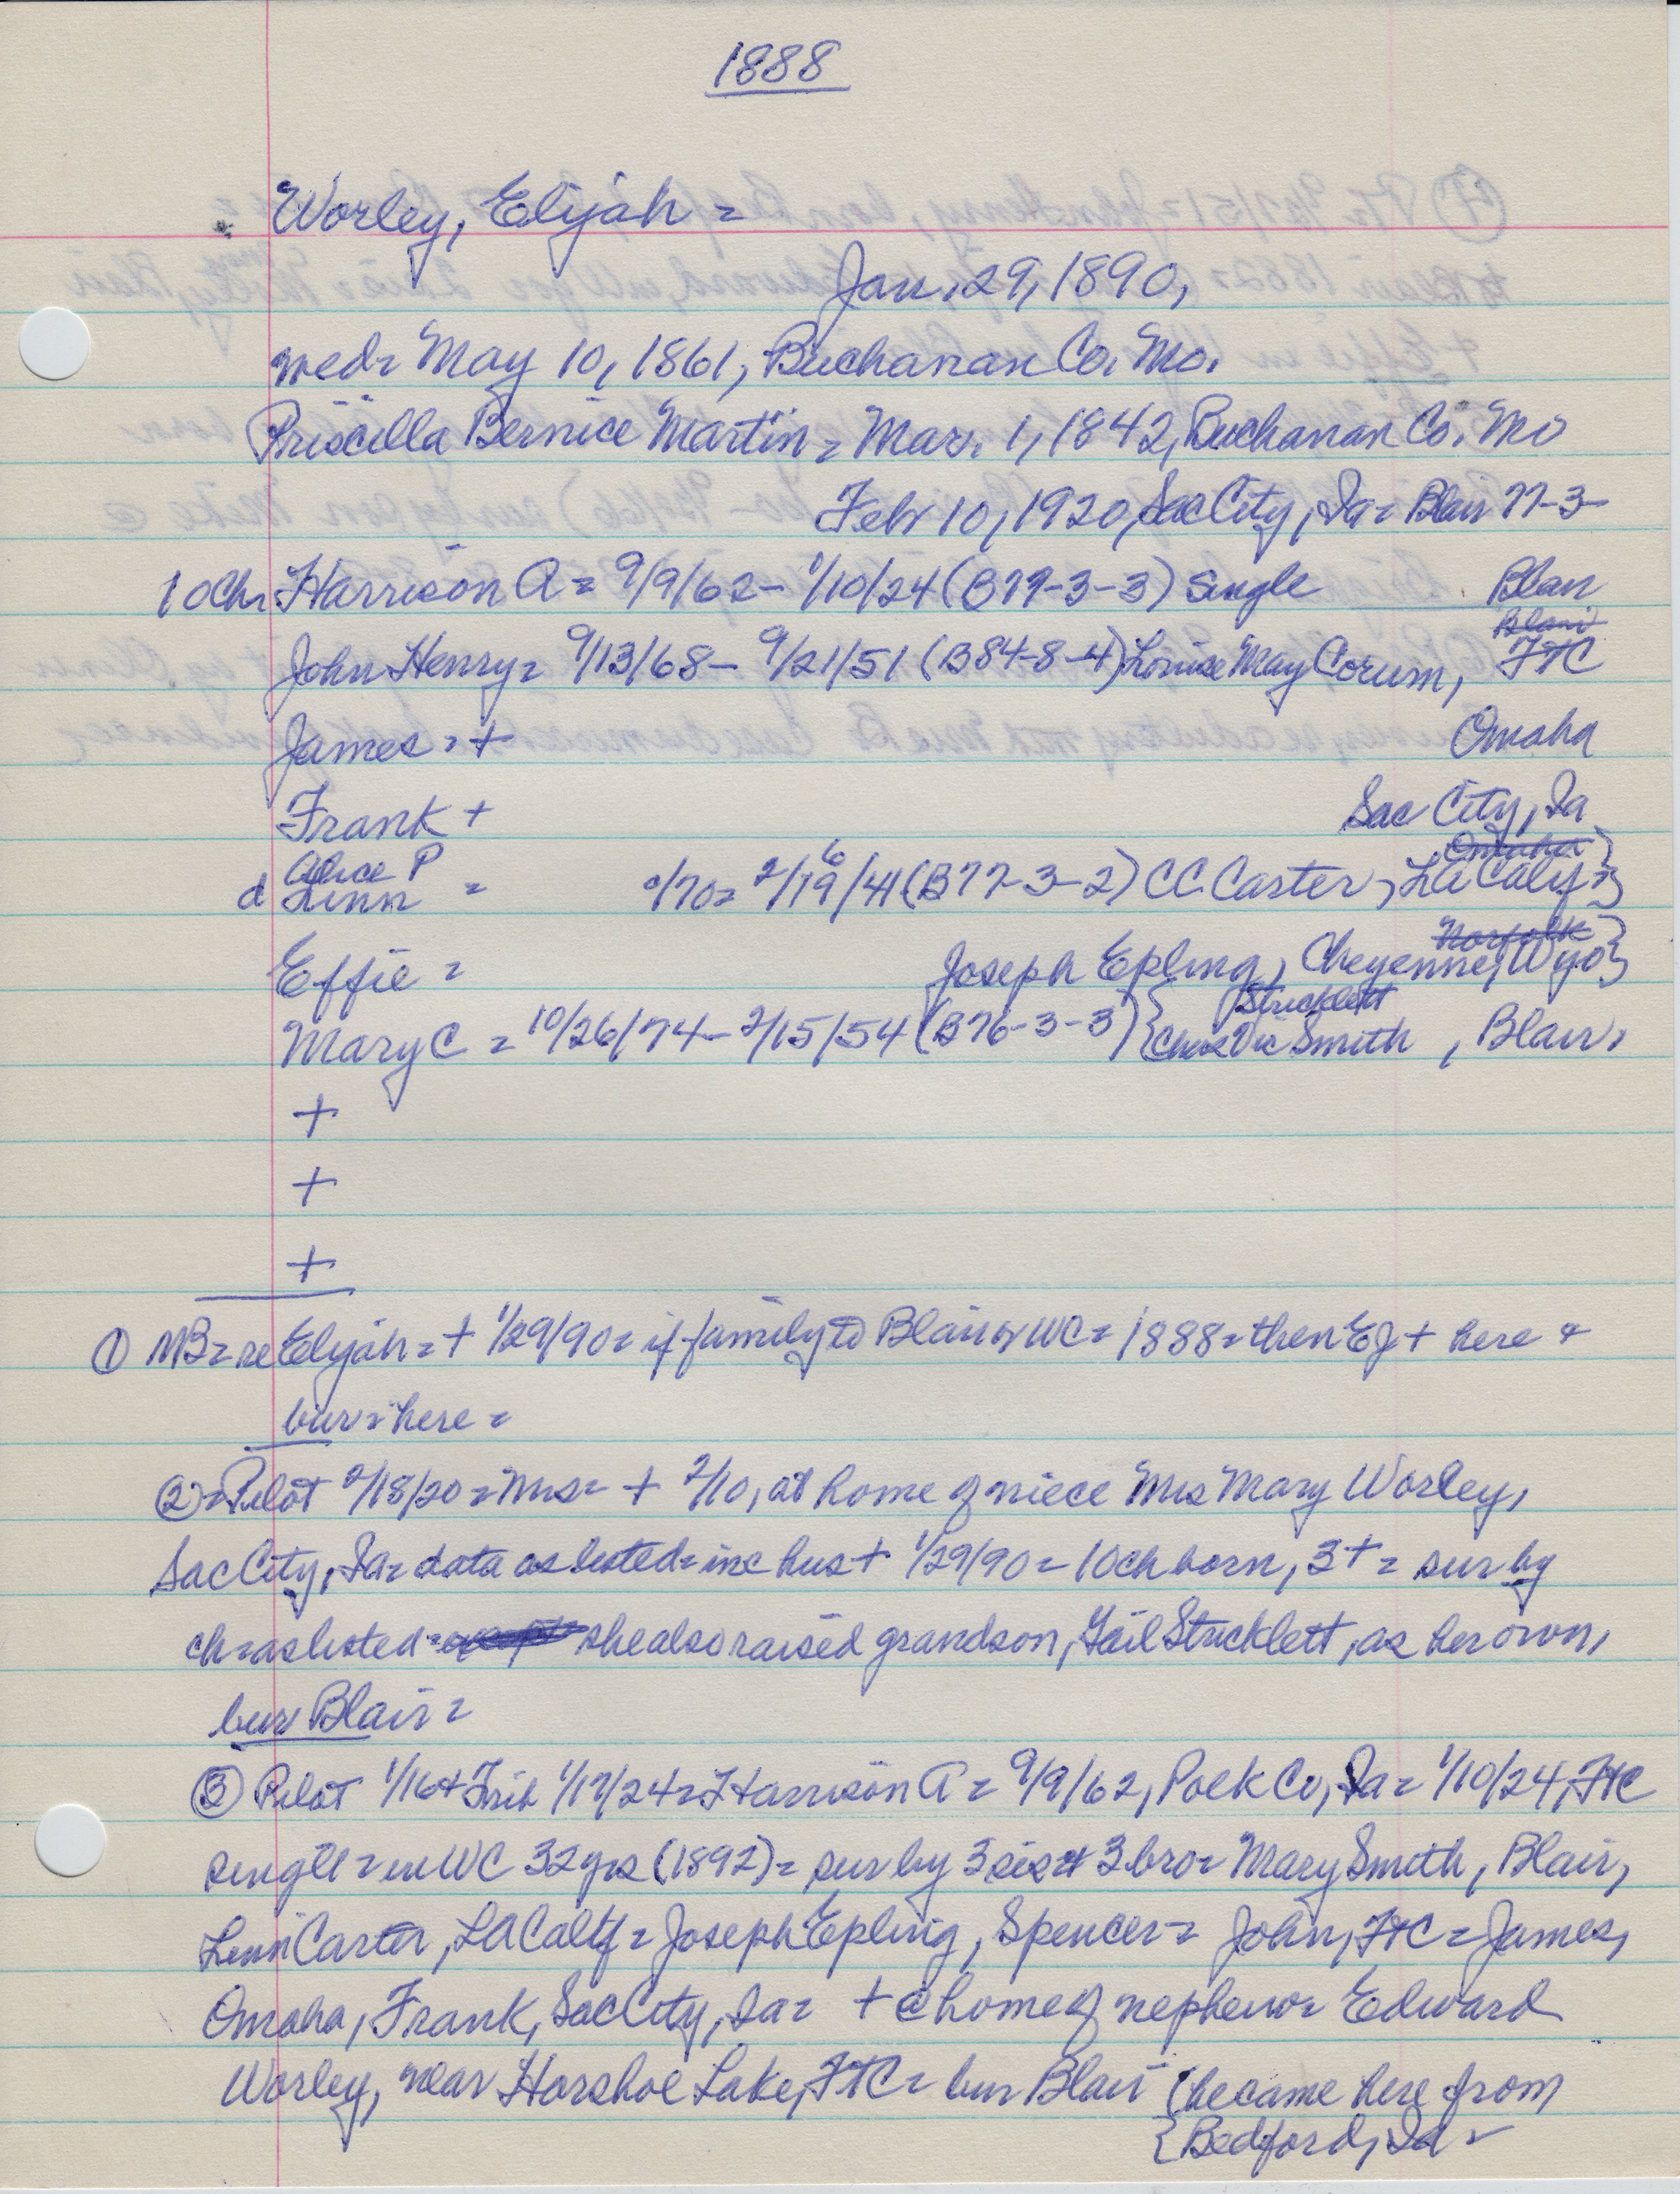 1888
Worley, Elijah =
Jan. 29, 1890,
med= May 10, 1861, Buchanan Co. Mo.
Priscilla Bernice Martin = Mar. 1, 1842, Buchanan Co. Mo
Feb 10, 1920, Sac City, Ia = Blair 77-3-
10 Ch= Harrison A = 9/9/62 - 1/10/24 (B77-3-3) Single Blair
Blair
John Henry = 9/13/68 - 9/21/51 (B84-8-4) Louise May Corum, FtC
James = + Omaha
Frank + Sac City, Ia
Alice P Omaha
d Linn = /70= 2/19/41 (B77-3-2) CC. Carter, LA Calif = }
6
Norfolk
Effie = Joseph Epling, Cheyenne, Wyo }
Stricklett
Mary C = 10/26/74 - 2/15/54 (B76-3-3) { Chas Vic Smith, Blair,
+
+
+
① NB = re Elijah = + 1/29/90 = if family to Blair or WC = 1888 = then EJ + here &
bur = here =
② = Pilot 2/18/20 = Mrs = + 2/10, at home of niece Mrs Mary Worley,
Sac City, Ia = data as listed = inc hus + 1/29/90 = 10 ch born, 3 + = sur by
ch = as listed = she also raised grandson, Gail Stricklett, as her own,
bur Blair =
③ Pilot 1/16 + Trib 1/17/24 = Harrison A = 9/9/62, Polk Co, Ia = 1/10/24, FtC
single = in WC 32 yrs (1892) = sur by 3 sis & 3 bro = Mary Smith, Blair,
Linn Carter, LA Calif = Joseph Epling, Spencer = John, FtC = James,
Omaha, Frank, Sac City, Ia = + @ home of nephew = Edward
Worley, near Horshoe Lake, FtC = bur Blair { he came here from
{ Bedford, Ia =